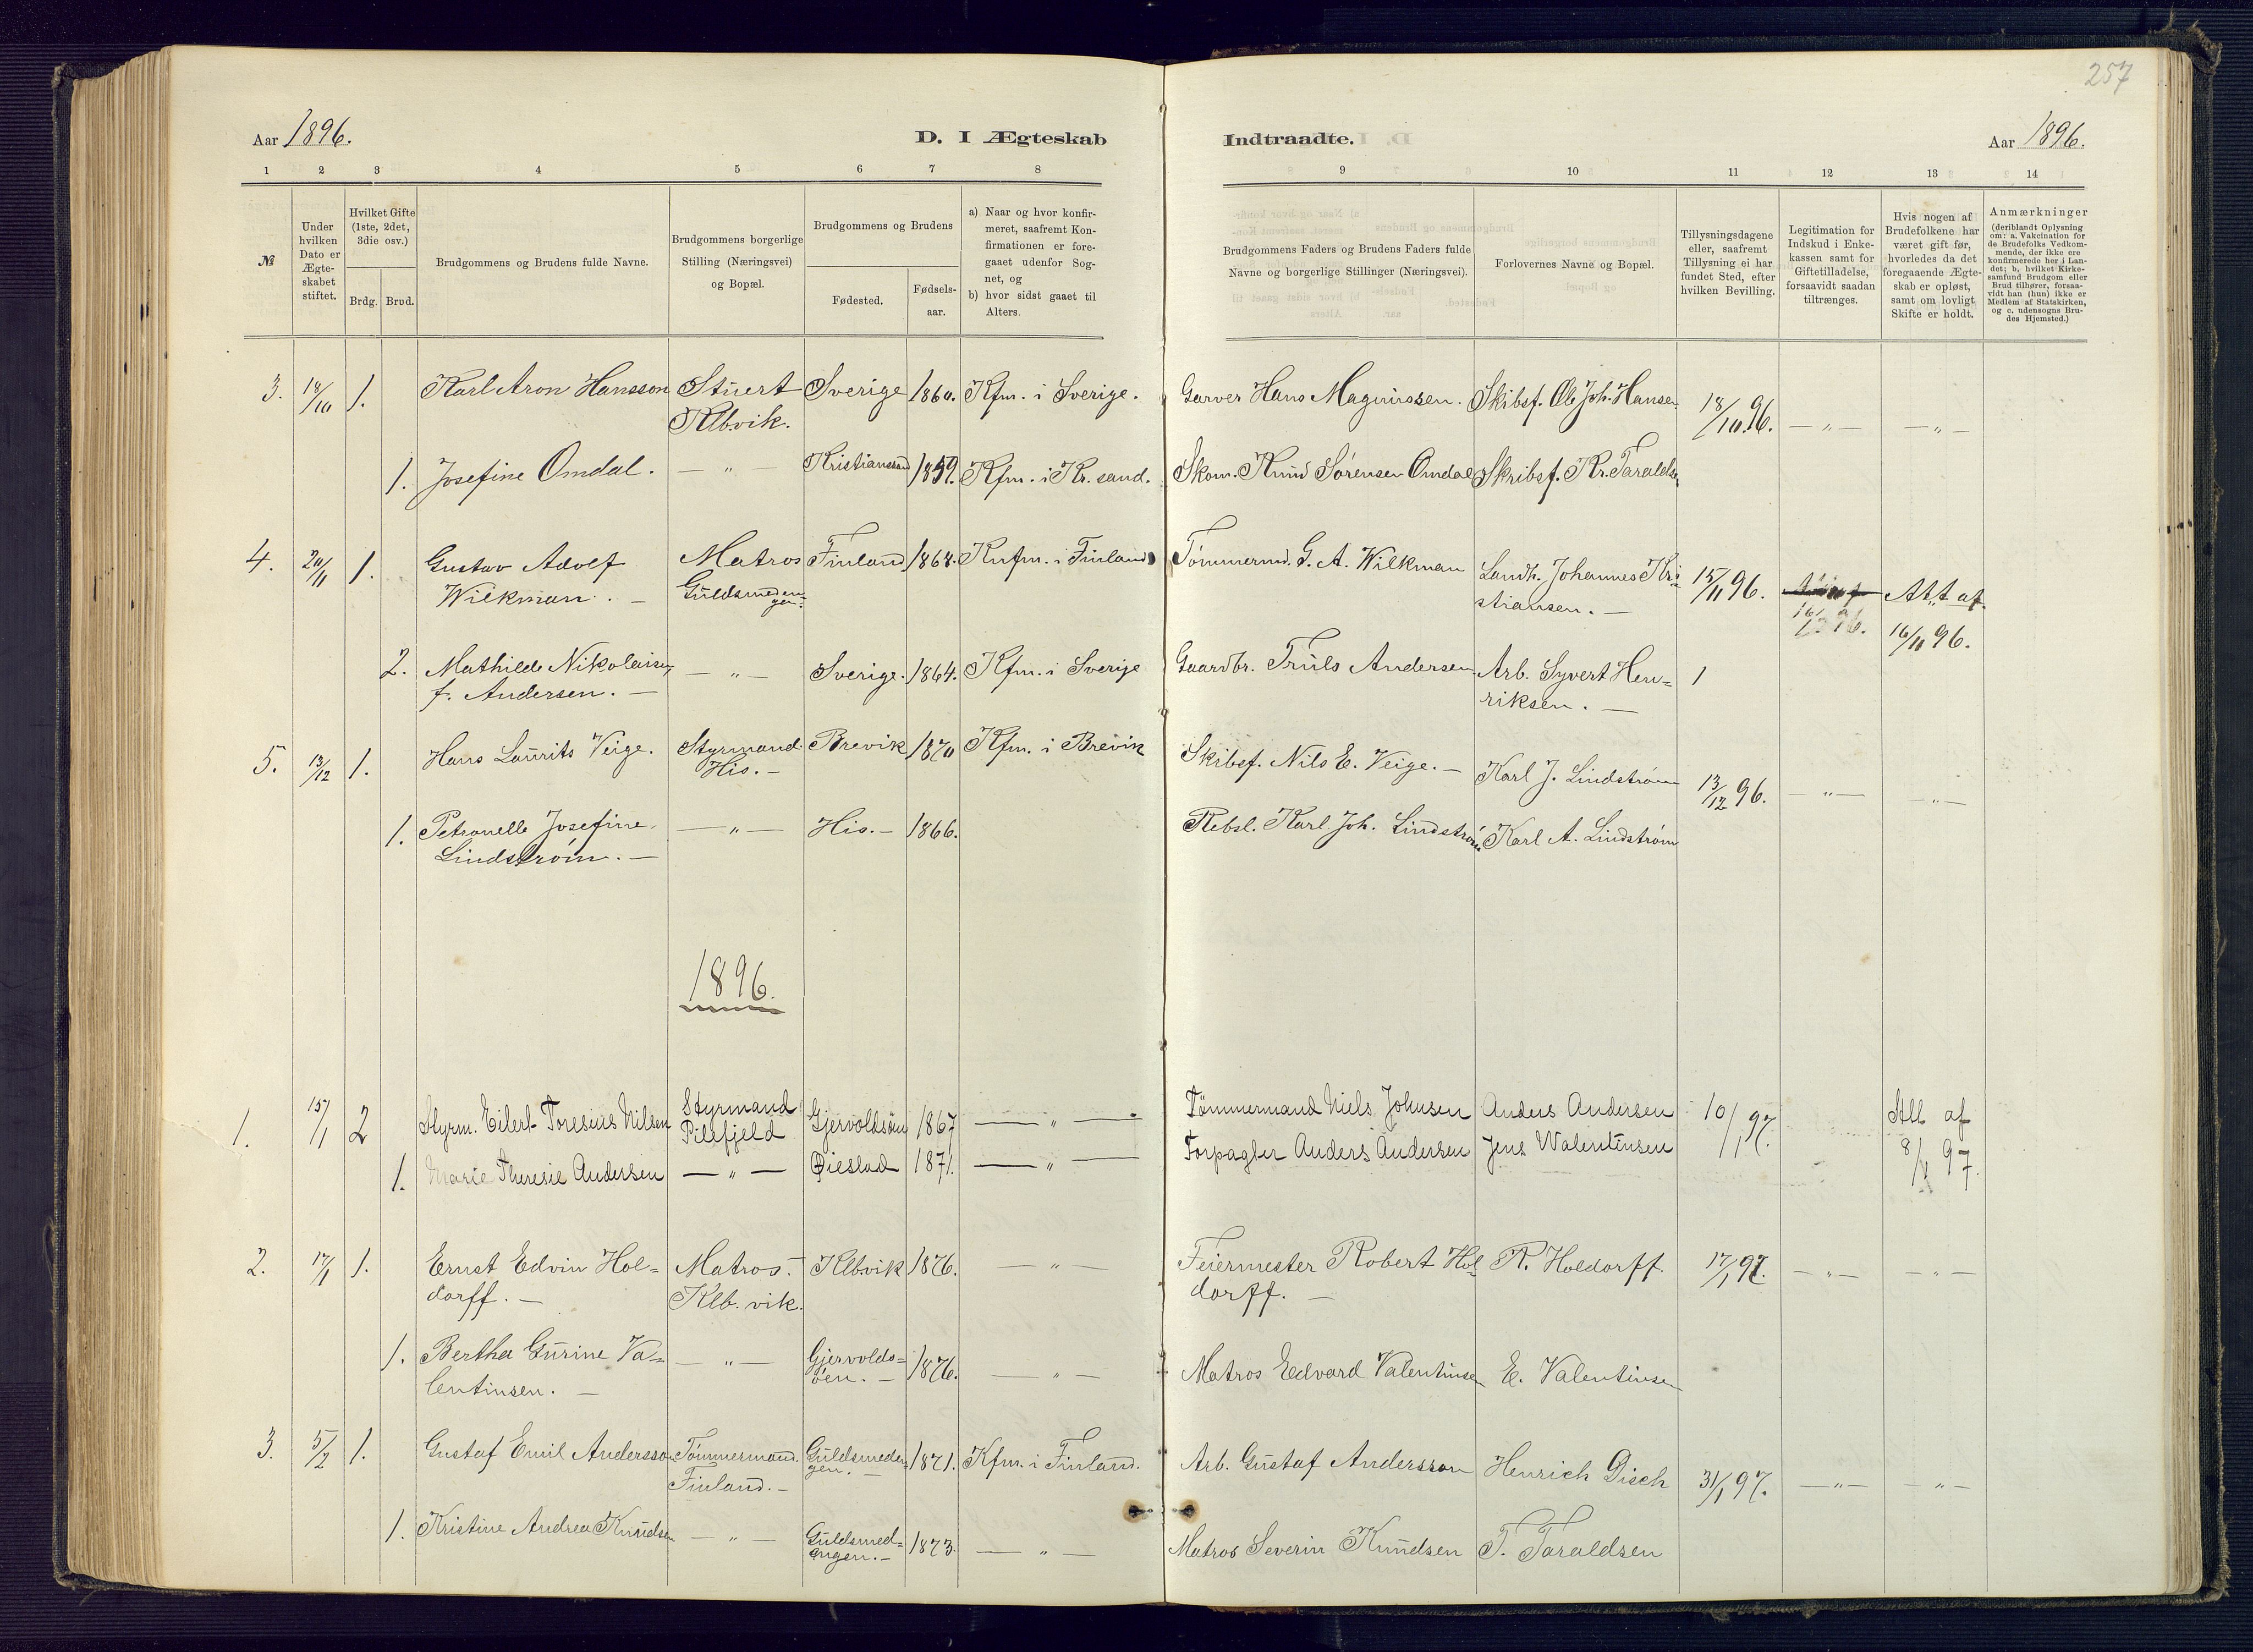 257
Aar 1896.
D. I Ægteskab
Indtraadte.
Aar 1896.
1 2 3 4 5 6 7 8
9 10 11 12 13 14
№
Under hvilken Dato er Ægteskabet stiftet.
Hvilket Gifte (1ste, 2det, 3die osv.)
Brdg. Brud.
Brudgommens og Brudens fulde Navne.
Brudgommens borgerlige Stilling (Næringsvei) og Bopæl.
Brudgommens og Brudens
Fødested.
Fødsels-aar.
a) Naar og hvor konfirmeret, saafremt Konfirmationen er foregaaet udenfor Sognet, og
b) hvor sidst gaaet til Alters.
Brudgommens Faders og Brudens Faders fulde Navne og borgerlige Stillinger (Næringsvei).
Forlovernes Navne og Bopæl.
Tillysningsdagene eller, saafremt Tillysning ei har fundet Sted, efter hvilken Bevilling.
Legitimation for Indskud i Enkekassen samt for Giftetilladelse, forsaavidt saadan tiltrænges.
Hvis nogen af Brudefolkene har været gift før, hvorledes da det foregaaende Ægteskab er opløst, samt om lovligt Skifte er holdt.
Anmærkninger (deriblandt Oplysning om: a. Vakcination for de Brudefolks Vedkommende, der ikke ere konfirmerede her i Landet; b, hvilket Kirkesamfund Brudgom eller Brud tilhører, forsaavidt han (hun) ikke er Medlem af Statskirken, og c. udensogns Brudes Hjemsted.)
3. 18/10 1. Karl Aron Hansson Stuert Sverige 1860. Kfm. i Sverige. Garver Hans Magnussen. Skibsf. Ole Joh. Hansen 18/10.96. — " — — " —
Klbvik.
1. Josefine Omdal. — " — Kristianssand 1859. Kfm. i Kr. sand. Skom. Knud Sørensen Omdal Skribsf. Kr. Taraldsen
4. 20/11 1. Gustav Adolf Matros Finland 1868. Knfm. i Finland Tømmermd. G. A. Wilkman Landh. Johannes Kri- 15/11 96. Att af
Wilkman. — Guldsmeden- stiansen. — 16/11 96.
gen.
2. Mathilde Nikolaisen, — " — Sverige. 1864. Kfm. i Sverige Gaardbr. Truls Andersen. Arb. Syvert Hen= 1
f. Andersen. — riksen. —
5. 13/12 1. Hans Laurits Veige. Styrmand. Brevik 1870 Kfm. i Brevik Skibsf. Nils E. Veige. — Karl J. Lindstrøm 13/12 96. — " — — " —
His. —
1. Petronelle Josefine — " — His. — 1866. Rebsl. Karl Joh. Lindstrøm Karl A. Lindstrøm
Lindstrøm. —
1896.
1. 15/1 2 Styrm. Eilert Toresius Nilsen Styrmand Gjervoldsøen 1867 — " — Tømmermand Niels Johnsen Anders Andersen 10/1 97. Att af
Pilefjeld 8/1 97.
1. Marie Theresie Andersen — " — Øiestad 1871. — " — Forpagter Anders Andersen Jens Walentinsen
2. 17/1 1. Ernst Edvin Hol= Matros. Klbvik 1876. — " — Feiermester Robert Hol= R. Holdorff. 17/1 97. — " — — " —
dorff. — Klb. vik. dorff. —
1. Bertha Gurine Va= — " — Gjervolds= 1876. — " — Matros Edvard Valentinsen E. Valentinsen
lentinsen. — øen. —
3. 5/2 1. Gustaf Emil Andersson Tømmermand. Guldsmeden= 1871. Kfm. i Finland. Arb. Gustaf Andersson Henrich Disch 31/1 97. — " — — " —
Finland. — gen. —
1. Kristine Andrea Knudsen — " — Guldsmed= 1873. — " — Matros Severin Knudsen T. Taraldsen
engen. —